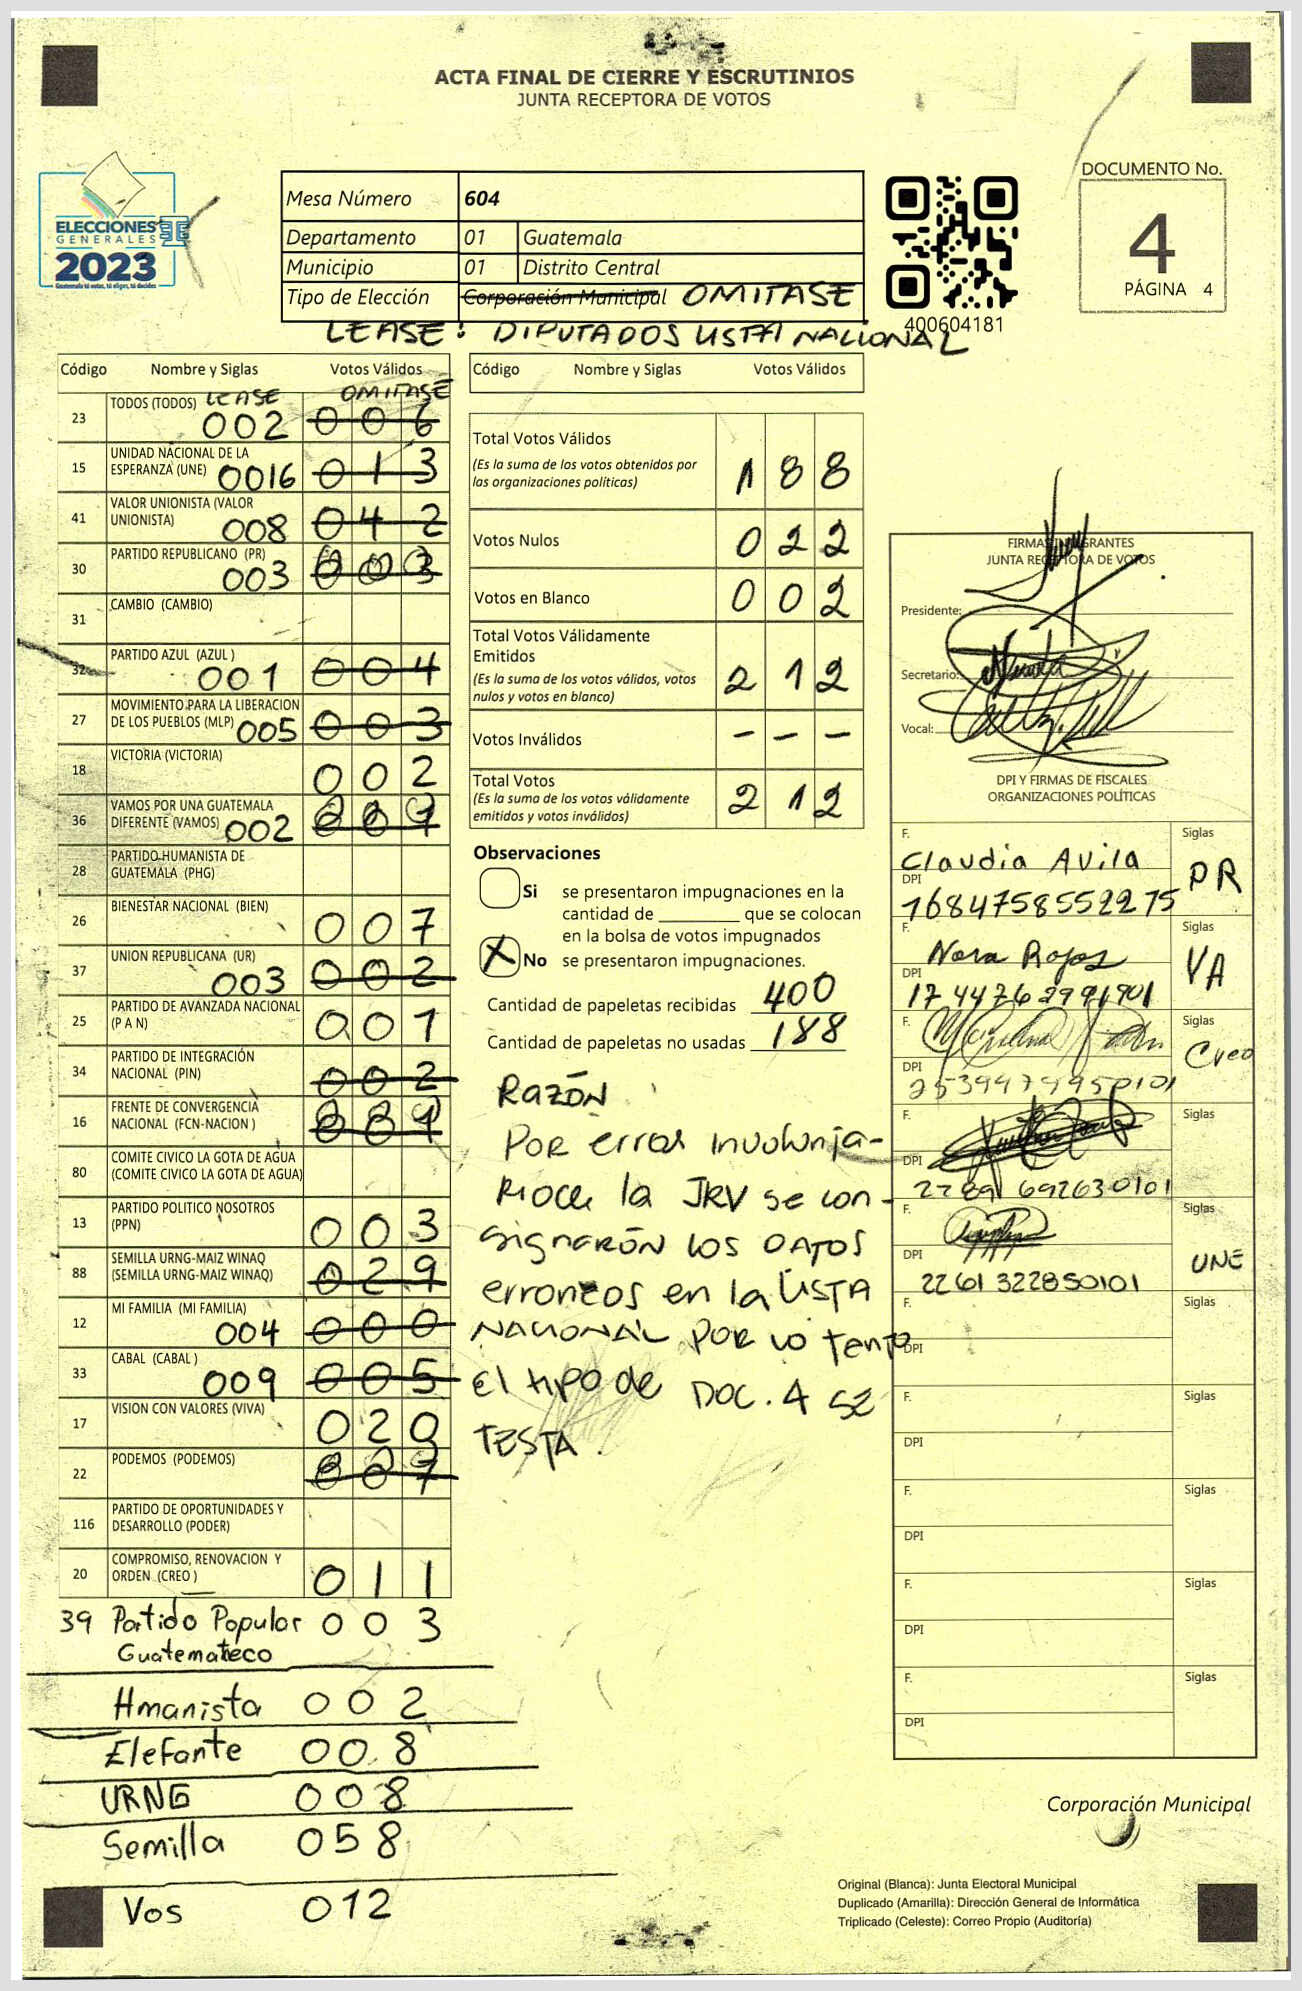 ACTA FINAL DE CIERRE Y ESCRUTINIOS
JUNTA RECEPTORA DE VOTOS
ELECCIONES
GENERALES
2023
Guatemala tú votas, tú eliges, tú decides
Mesa Número 604
Departamento 01 Guatemala
Municipio 01 Distrito Central
Tipo de Elección Corporación Municipal OMITASE
LEASE: DIPUTADOS LISTA NACIONAL
400604181
DOCUMENTO No.
4
PÁGINA 4
Código Nombre y Siglas Votos Válidos
LEASE OMITASE
23 TODOS (TODOS) 002 006
15 UNIDAD NACIONAL DE LA
ESPERANZA (UNE) 0016 013
41 VALOR UNIONISTA (VALOR
UNIONISTA) 008 042
30 PARTIDO REPUBLICANO (PR) 003 003
31 CAMBIO (CAMBIO)
32 PARTIDO AZUL (AZUL ) 001 004
27 MOVIMIENTO PARA LA LIBERACION
DE LOS PUEBLOS (MLP) 005 003
18 VICTORIA (VICTORIA) 002
36 VAMOS POR UNA GUATEMALA
DIFERENTE (VAMOS) 002
28 PARTIDO HUMANISTA DE
GUATEMALA (PHG)
26 BIENESTAR NACIONAL (BIEN) 007
37 UNION REPUBLICANA (UR) 003 002
25 PARTIDO DE AVANZADA NACIONAL
(P A N) 001
34 PARTIDO DE INTEGRACIÓN
NACIONAL (PIN) 002
16 FRENTE DE CONVERGENCIA
NACIONAL (FCN-NACION )
80 COMITE CIVICO LA GOTA DE AGUA
(COMITE CIVICO LA GOTA DE AGUA)
13 PARTIDO POLITICO NOSOTROS
(PPN) 003
88 SEMILLA URNG-MAIZ WINAQ
(SEMILLA URNG-MAIZ WINAQ) 029
12 MI FAMILIA (MI FAMILIA) 004 000
33 CABAL (CABAL ) 009 005
17 VISION CON VALORES (VIVA) 020
22 PODEMOS (PODEMOS) 007
116 PARTIDO DE OPORTUNIDADES Y
DESARROLLO (PODER)
20 COMPROMISO, RENOVACION Y
ORDEN (CREO ) 011
39 Partido Popular 003
Guatemalteco
Hmanista 002
Elefante 008
URNG 008
Semilla 058
Vos 012
Código Nombre y Siglas Votos Válidos
Total Votos Válidos 188
(Es la suma de los votos obtenidos por
las organizaciones políticas)
Votos Nulos 022
Votos en Blanco 002
Total Votos Válidamente
Emitidos 212
(Es la suma de los votos válidos, votos
nulos y votos en blanco)
Votos Inválidos - - -
Total Votos 212
(Es la suma de los votos válidamente
emitidos y votos inválidos)
Observaciones
Si se presentaron impugnaciones en la
cantidad de ________ que se colocan
en la bolsa de votos impugnados
X No se presentaron impugnaciones.
Cantidad de papeletas recibidas 400
Cantidad de papeletas no usadas 188
RAZÓN
Por error involunta-
rio de la JRV se con-
signarón los DATOS
erroneos en la LISTA
NACIONAL POR lo tento
el tipo de DOC. 4 se
TESTA.
FIRMAS INTEGRANTES
JUNTA RECEPTORA DE VOTOS
Presidente:
Secretario:
Vocal:
DPI Y FIRMAS DE FISCALES
ORGANIZACIONES POLÍTICAS
F. Claudia Avila Siglas PR
DPI 1684758552275
F. Nora Rojas Siglas VA
DPI 1744762991901
F. Siglas Creo
DPI 2539479950101
F. Siglas
DPI 2289 692630101
F. Siglas UNE
DPI 2261322850101
F. Siglas
DPI
F. Siglas
DPI
F. Siglas
DPI
F. Siglas
DPI
F. Siglas
DPI
Corporación Municipal
Original (Blanca): Junta Electoral Municipal
Duplicado (Amarilla): Dirección General de Informática
Triplicado (Celeste): Correo Propio (Auditoría)